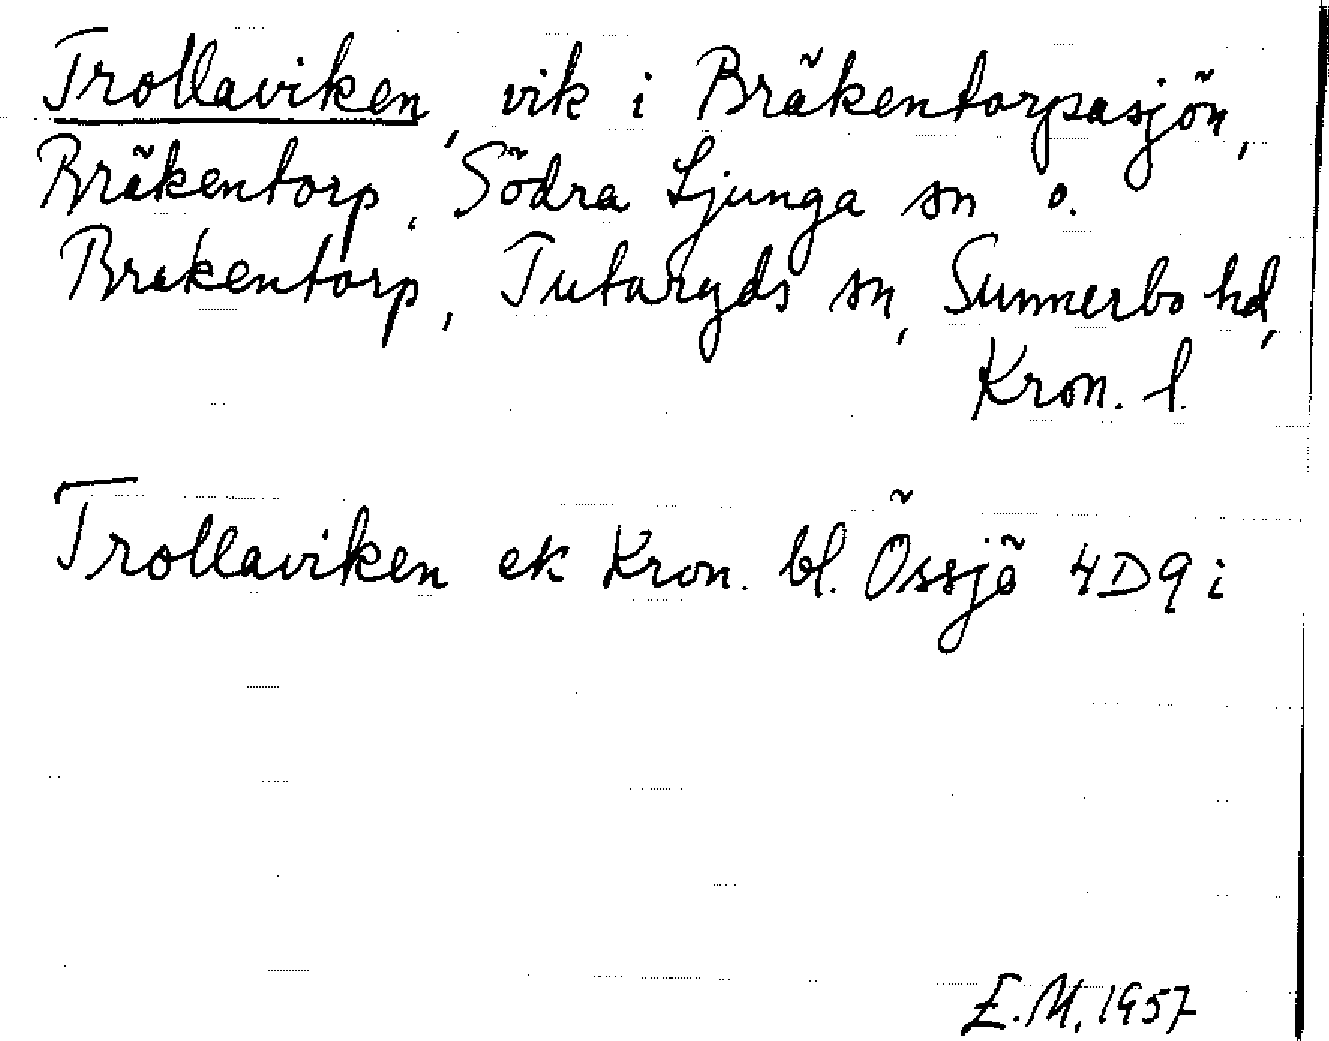 Trollaviken, vik i Bräkentorpasjön,
Bräkentorp, Södra Ljunga sn o.
Brakentorp, Tutaryds sn, Sunnerbo hd,
Kron. l.
Trollaviken ek Kron. bl. Össjö 4D9i
E.M. 1957